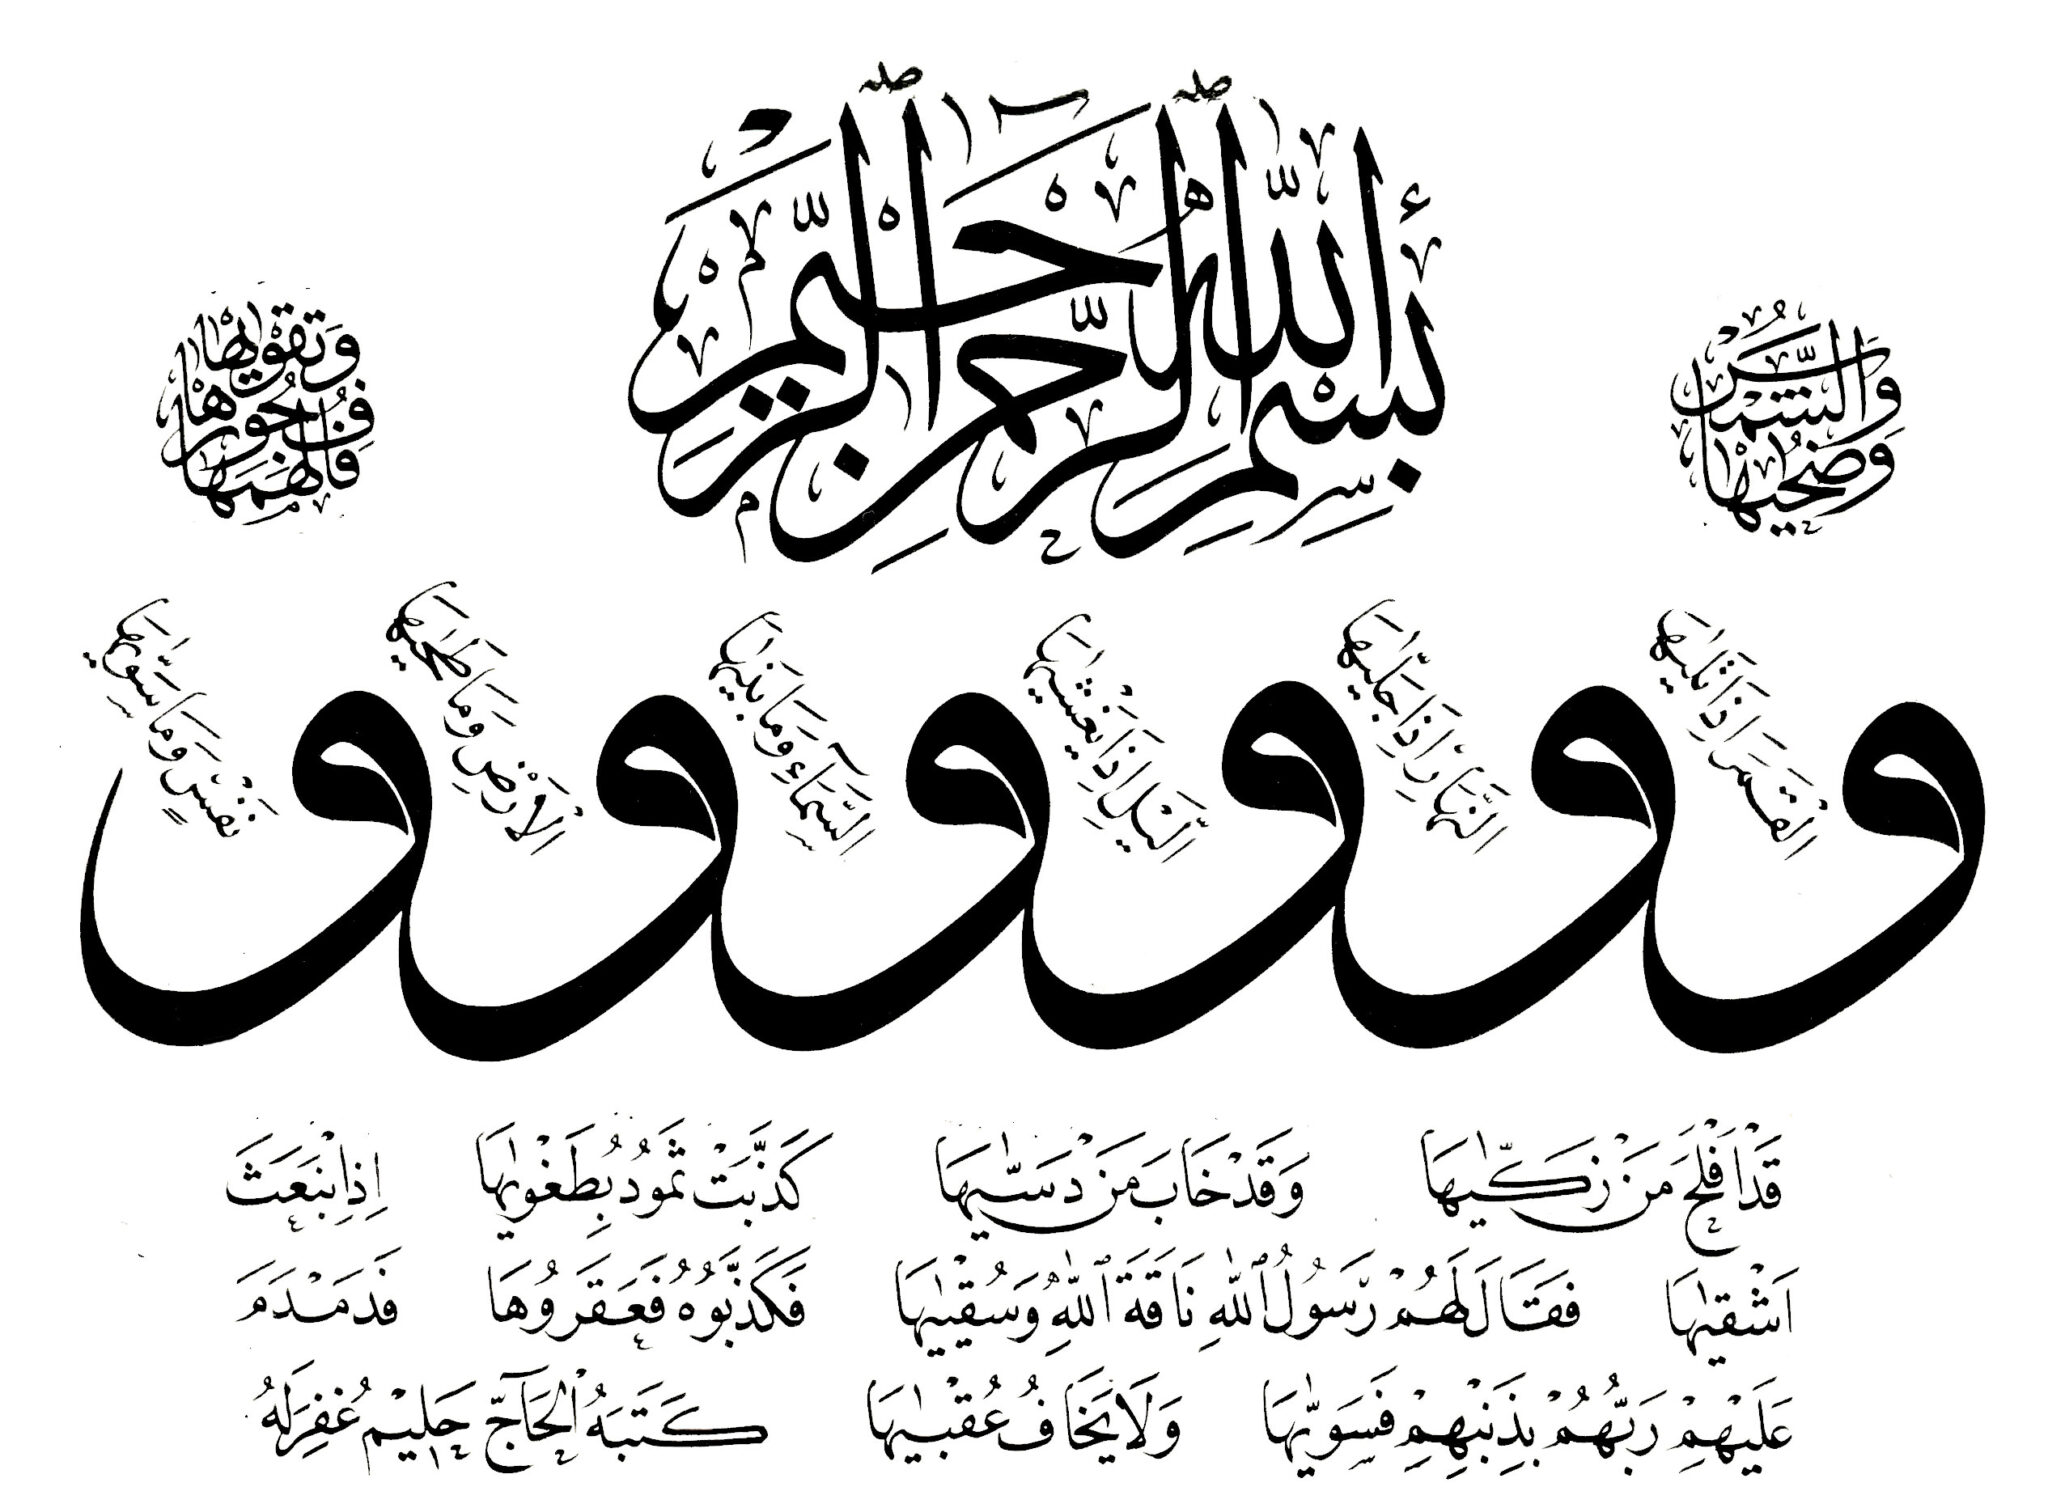 بِسْمِ ٱللّٰهِ ٱلرَّحْمٰنِ ٱلرَّحِيمِ
وَالشَّمْسِ وَضُحٰيهَا
وَ الْقَمَرِ اِذَا تَلٰيهَا
وَ النَّهَارِ اِذَا جَلّٰيهَا
وَ الَّيْلِ اِذَا يَغْشٰيهَا
وَ السَّمَآءِ وَمَا بَنٰيهَا
وَ الْاَرْضِ وَمَا طَحٰيهَا
وَ نَفْسٍ وَمَا سَوّٰيهَا
فَاَلْهَمَهَا فُجُورَهَا وَتَقْوٰيهَا
قَدْ اَفْلَحَ مَنْ زَكّٰيهَا وَقَدْ خَابَ مَنْ دَسّٰيهَا كَذَّبَتْ ثَمُودُ بِطَغْوٰيهَا اِذِ انْبَعَثَ
اَشْقٰيهَا فَقَالَ لَهُمْ رَسُولُ ٱللّٰهِ نَاقَةَ ٱللّٰهِ وَسُقْيٰيهَا فَكَذَّبُوهُ فَعَقَرُوهَا فَدَمْدَمَ
عَلَيْهِمْ رَبُّهُمْ بِذَنْبِهِمْ فَسَوّٰيهَا وَلَا يَخَافُ عُقْبٰيهَا كَتَبَهُ الْحَآجّ حَلِيْم غُفِرَ لَهُ